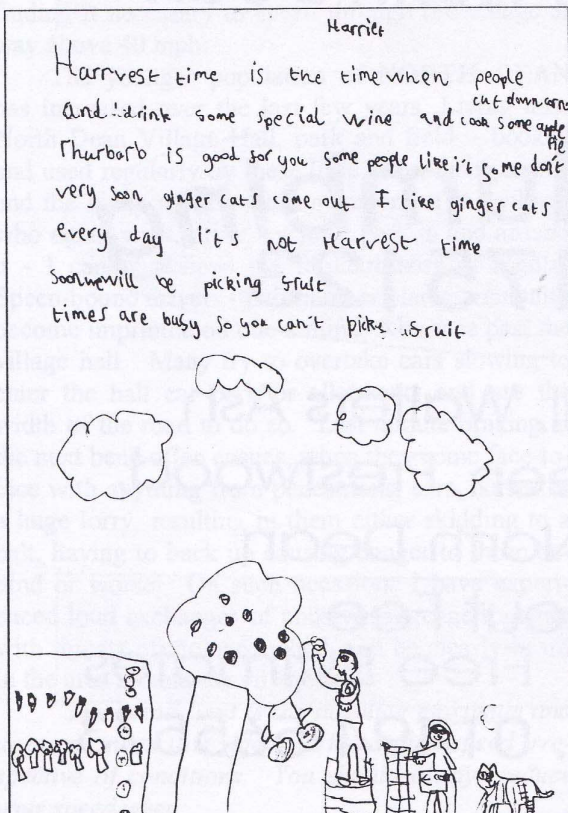 Harriet
Harrvest time is the time when people cut down corn
And drink some special wine and cook some apple Pie
rhurbarb is good for you some people like it some don't
very soon ginger cats come out I like ginger cats
every day it's not Harvest time
soon we will be picking fruit
times are busy so you can't pick fruit